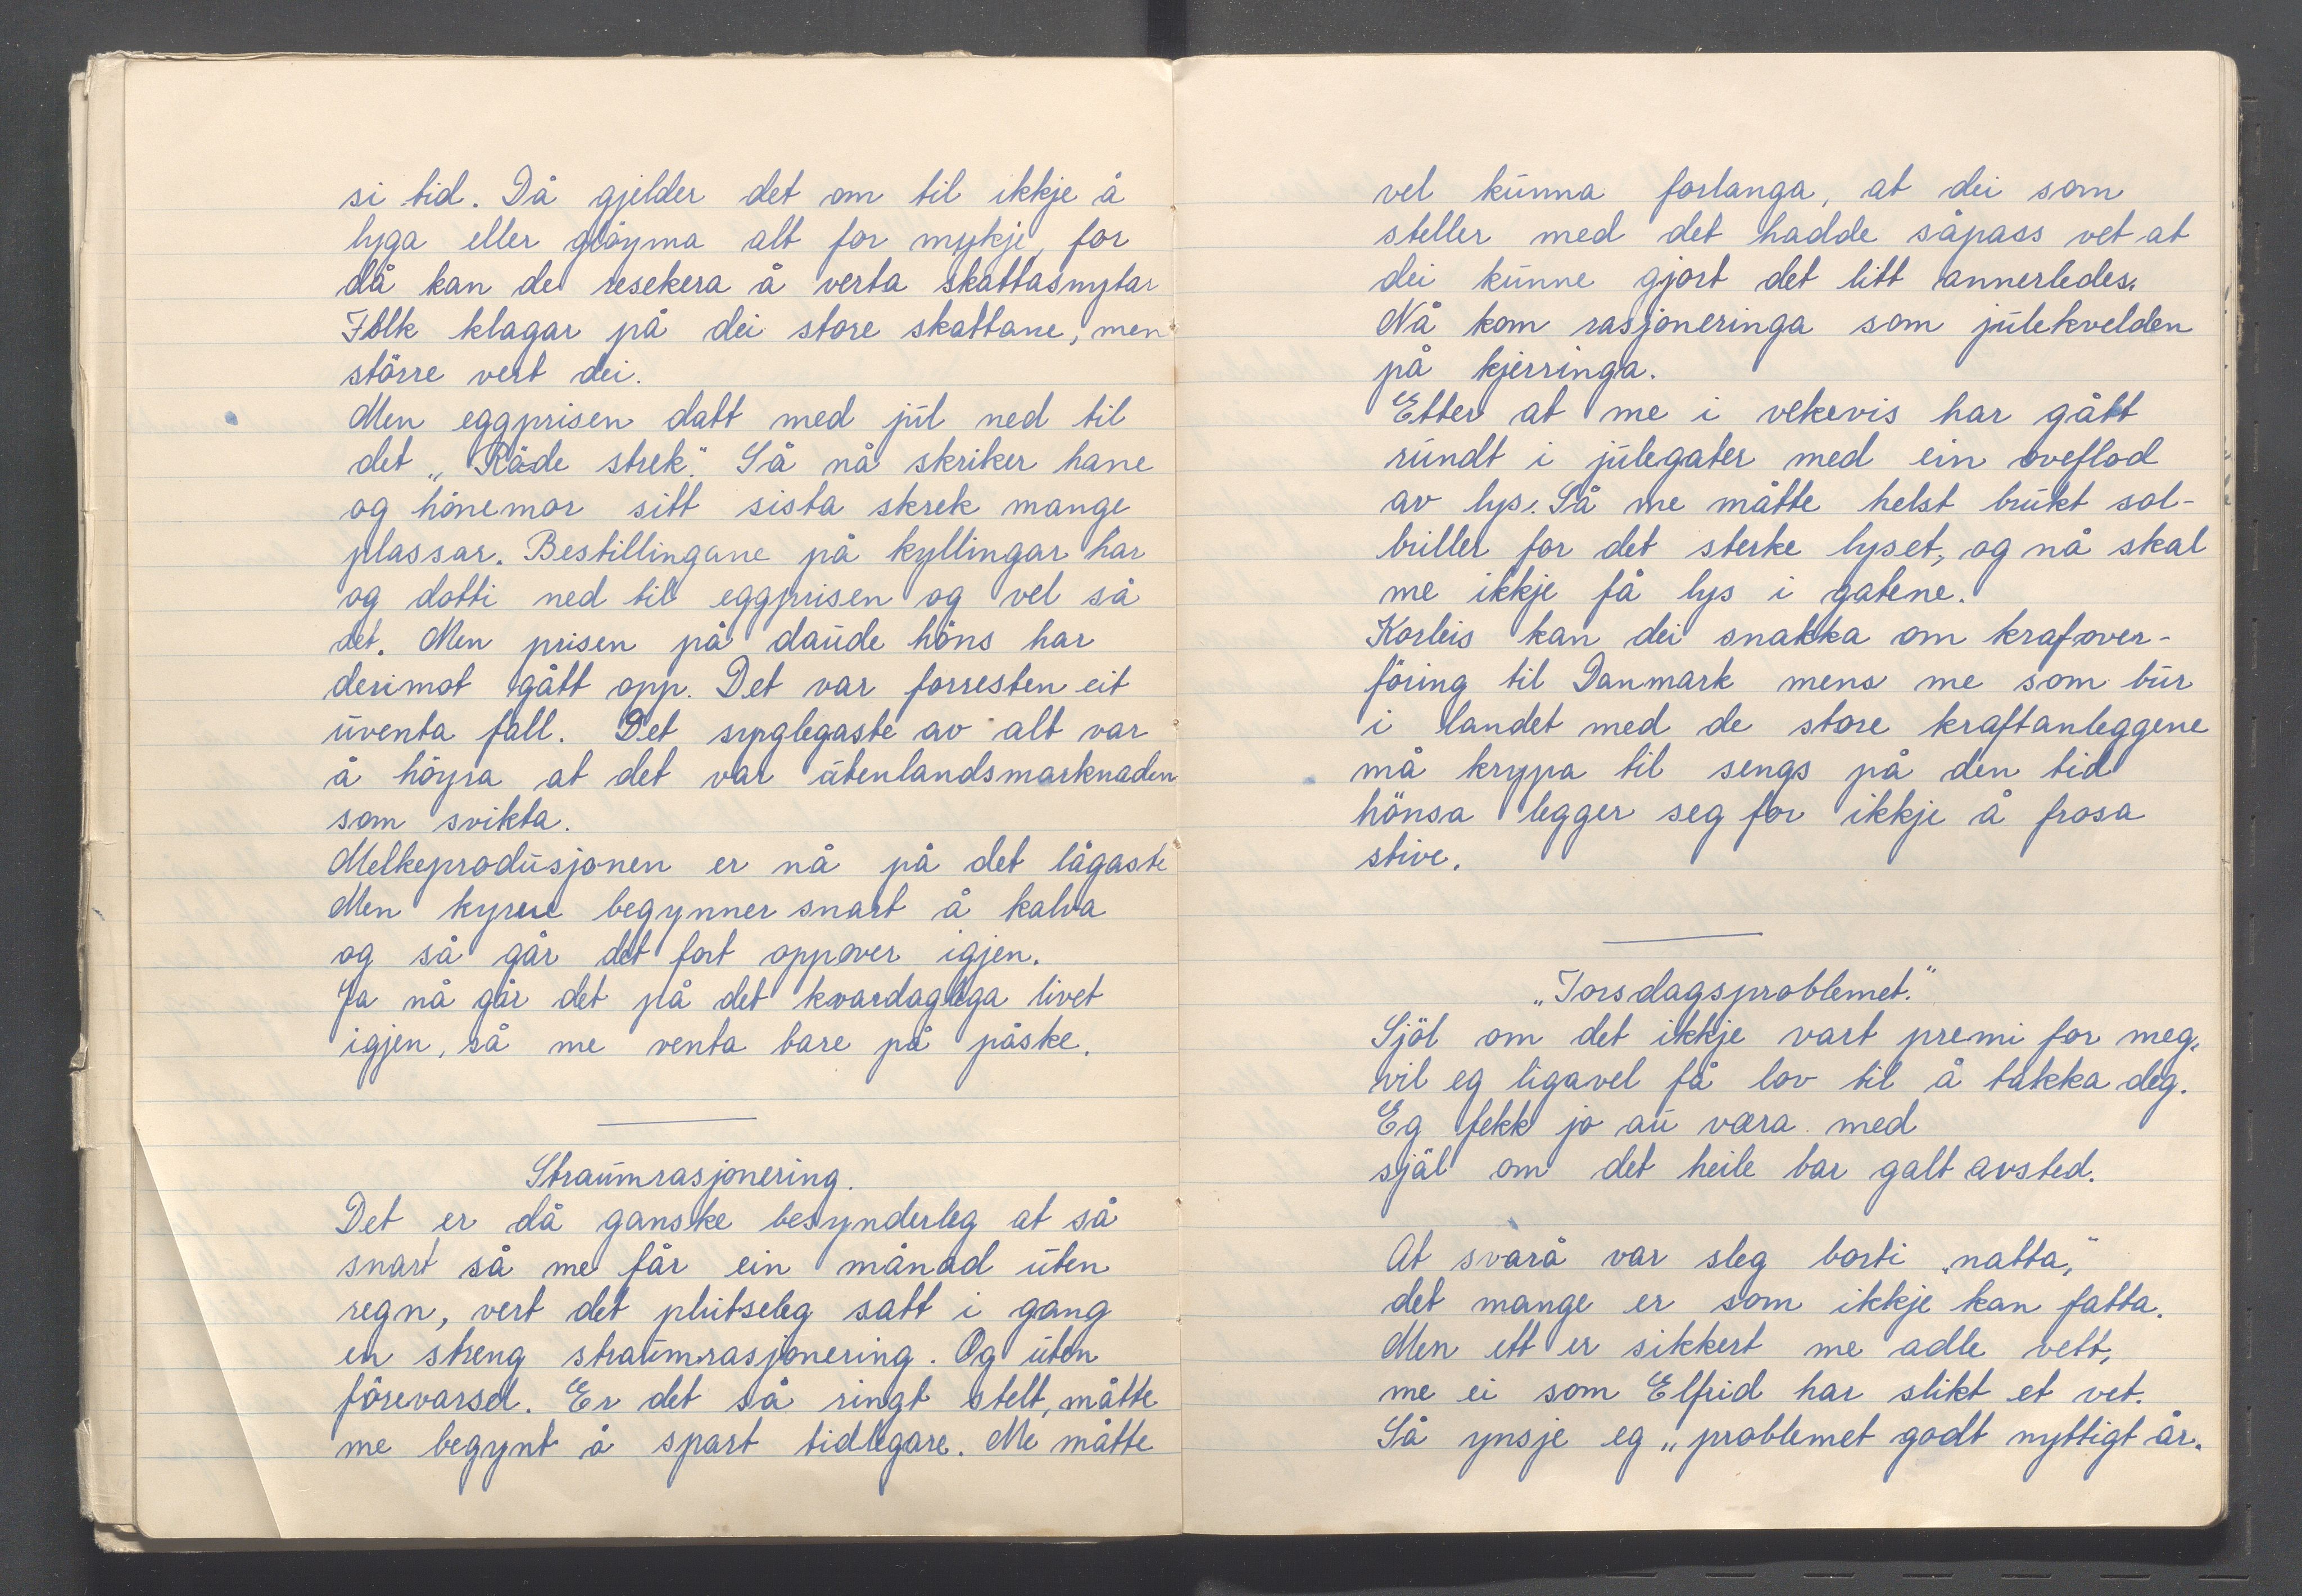 si tid. Då gjelder det om til ikkje å
lyga eller glöyma alt for mykje, for
då kan de resekera å verta skattasnytar
Folk klagar på dei store skattane, men
större vert dei.
Men eggprisen datt med jul ned til
det „Röde strek". Så nå skriker hane
og hönemor sitt sista skrek mange
plassar. Bestillingane på kyllingar har
og dotti ned til eggprisen og vel så
det. Men prisen på daude höns har
derimot gått opp. Det var forresten eit
uventa fall. Det syrglegaste av alt var
å höyra at det var utenlandsmarknaden
som svikta.
Melkeprodusjonen er nå på det lågaste
Men kyrne begynner snart å kalva
og så går det fort oppover igjen.
Ja nå går det på det kvardaglega livet
igjen, så me venta bare på påske.
Straumrasjonering.
Det er då ganske besynderleg at så
snart så me får ein månad uten
regn, vert det plutseleg satt i gang
en streng straumrasjonering. Og uten
förevarsel. Er det så ringt stelt, måtte
me begynt å spart tidlegare. Me måtte
vel kunna forlanga, at dei som
steller med det hadde såpass vet at
dei kunne gjort det litt annerledes.
Nå kom rasjoneringa som julekvelden
på kjerringa.
Etter at me i vekevis har gått
rundt i julegater med ein oveflod
av lys. Så me måtte helst brukt sol-
briller for det sterke lyset, og nå skal
me ikkje få lys i gatene.
Korleis kan dei snakka om krafover-
föring til Danmark mens me som bur
i landet med de store kraftanleggene
må krypa til sengs på den tid
hönsa legger seg for ikkje å frosa
stive.
„Torsdagsproblemet."
Sjöl om det ikkje vart premi for meg,
vil eg ligavel få lov til å takka deg.
Eg fekk jo au væra med
själ om det heile bar galt avsted.
At svarå var sleg borti „natta,"
det mange er som ikkje kan fatta.
Men ett er sikkert me adle vett,
me ei som Elfrid har slikt et vet.
Så ynsje eg „problemet godt nyttigt år.